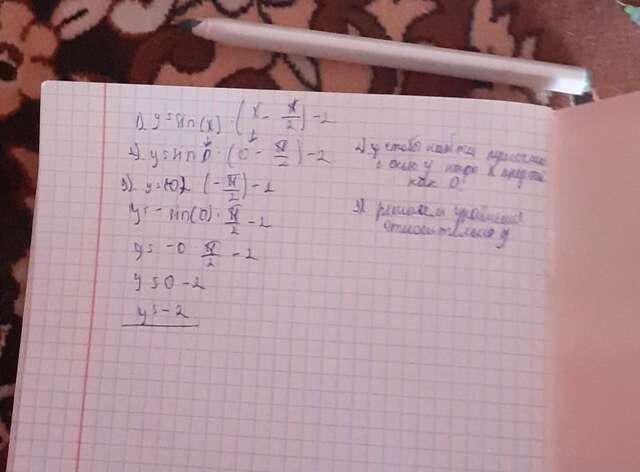 1) y = sin(x) · (x - π/2) - 2
2) y = sin 0 · (0 - π/2) - 2
3) y = (0) (-π/2) - 2
y = - sin(0) · π/2 - 2
y = -0 π/2 - 2
y = 0 - 2
y = -2
чтобы найти
с осью y надо x
как 0
решаем уравнение
относительно y